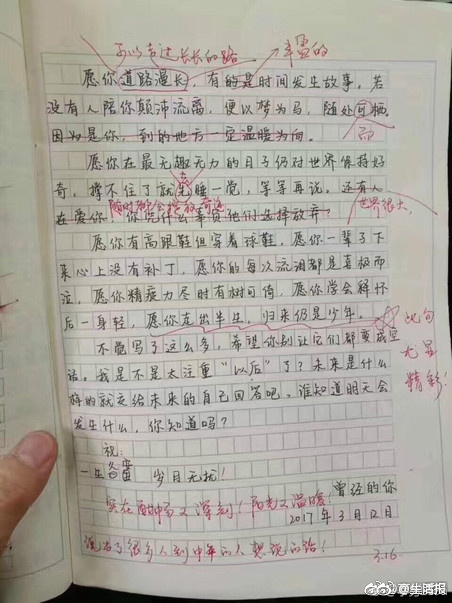 可以走过长长的路 丰富的
愿你道路漫长,有的是时间发生故事。若
没有人陪你颠沛流离,便以梦为马,随处可栖。
因为是你,到的地方一定温暖为向。
而
愿你在最无趣无力的日子仍对世界保持好
奇,撑不住了就先睡一觉,等等再说。还有人
在爱你,你凭什么辜负他们选择放弃?
随时都会
世界很大,
愿你有高跟鞋但穿着球鞋,愿你一辈子下
来心上没有补丁,愿你的每次流泪都是喜极而
泣,愿你精疲力尽时有树可倚,愿你学会释怀
后一身轻,愿你走出半生,归来仍是少年。
此句
尤显
精彩!
不觉写了这么多,希望你别让它们都变成空
话。我是不是太注重“以后”了?未来是什么
样的就交给未来的自己回答吧,谁知道明天会
发生什么,你知道吗?
祝:
一生备蜜 岁月无扰!
曾经的你
2017年3月12日
实在酣畅又深刻!阳光又温暖,
说出了很多人到中年的人想说的话!
3.16
@生腾报